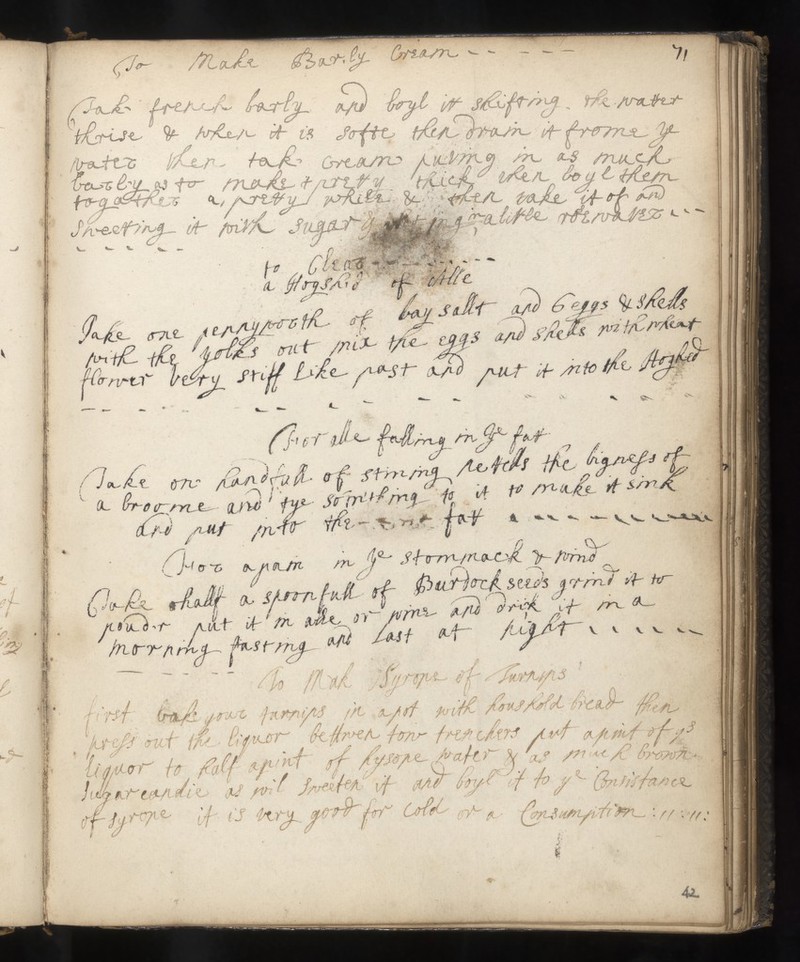 To Make Barly Cream
71
Take french barly and boyl it shifting the water
thrise & when it is softe then drain it frome ye
water then tak cream puting in as much
barly as to make it pretty thick then boyl them
togather a pretty while & then take it of and
Sweeting it with sugar a litle rosewater
to Clear
a Hogshid of Alle
Take one pennyworth of bay sallt and 6 eggs & shells
with the yolks out mix the eggs and shells with wheat
flower very stiff Like past and put it into the Hoghed
For alle falling in ye fatt
Take one handfull of stining netells the bigness of
a broome and tye something to it to make it sink
and put into the fatt
For a pain in ye stommack & wind
Take a spoonfull of Burdock seeds grind it to
pouder put it in alle or wine and drik it in a
morning fasting and Last at night
To Mak Syrope of Turnips
first bake your turnips in a pot with houshold bread then
press out the liquor between tow trenchers put a pint of ys
liquor to half a pint of hysope water & as much brown
Sugar candie as wil sweeten it and boyl it to ye Consistance
of syrope it is very good for Cold or a Consumption
42